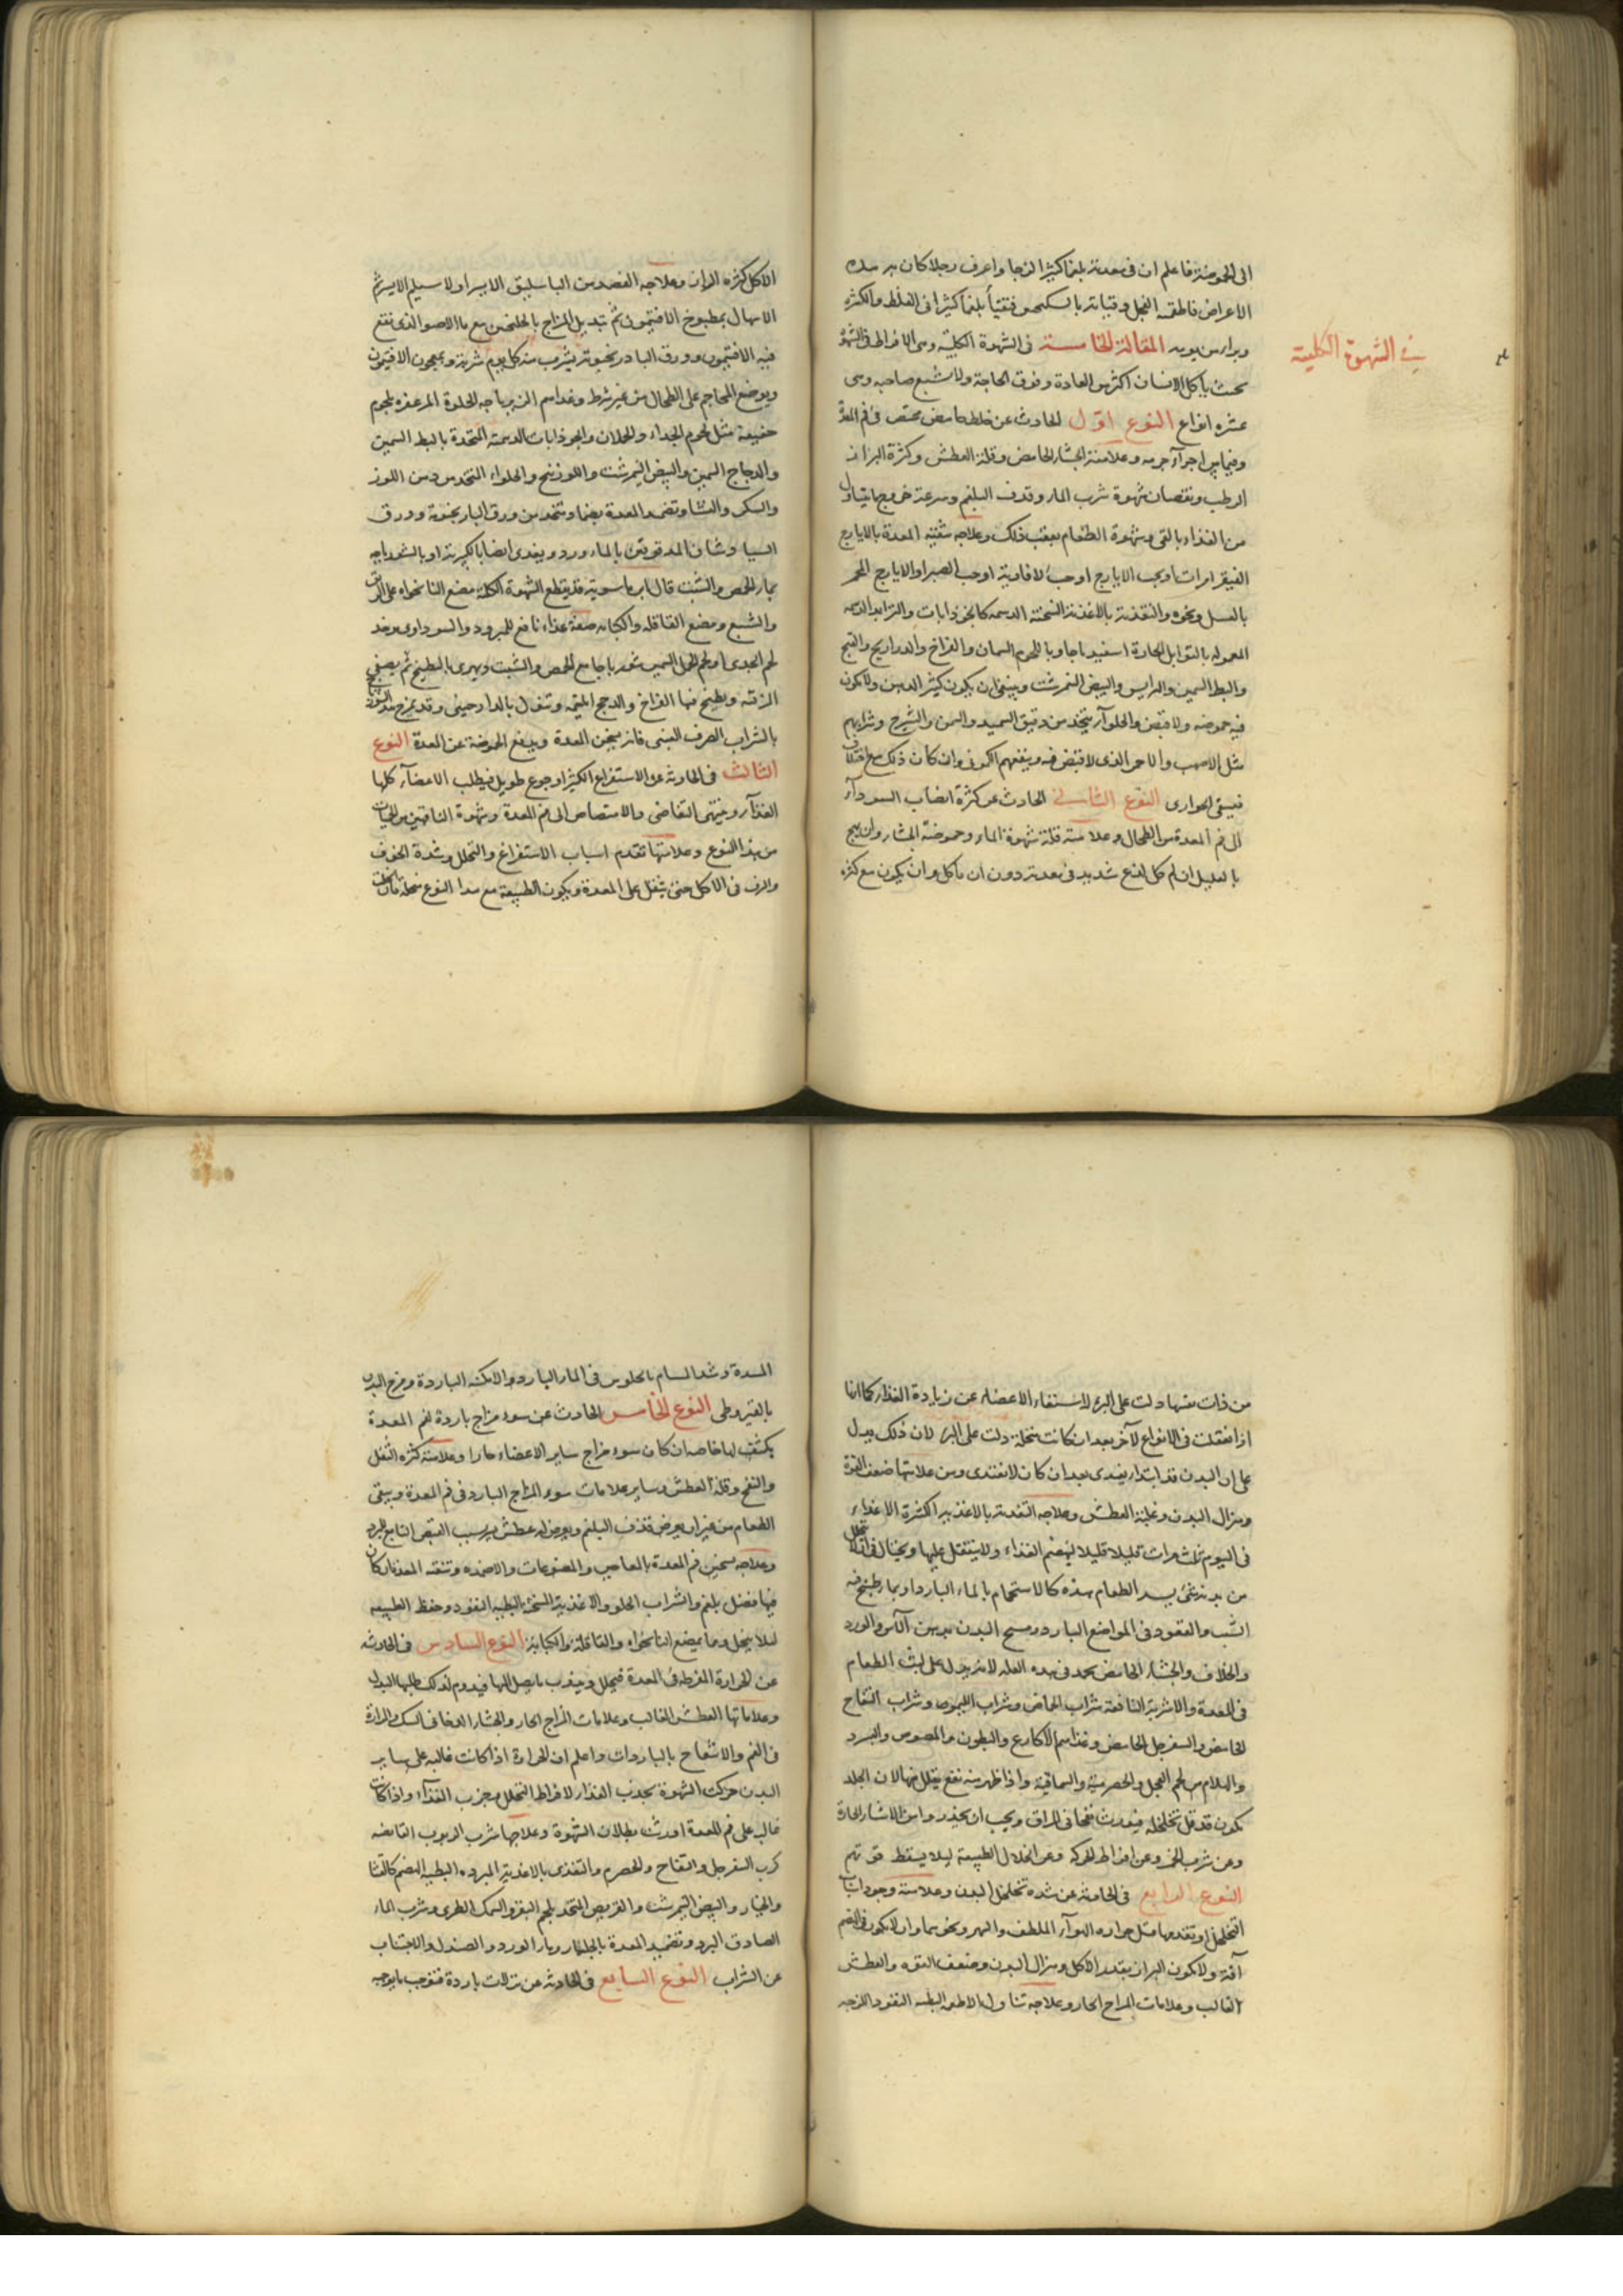 الى الحموضة فاعلم ان فى معدته بلغما كثيرا لزجا واعرف رجلا كان به هذه
الاعراض فاطعمته الفجل وقياته بالسكنجبين فتقيأ بلغما كثيرا فى الغلظ والكثرة
وبرا من يومه المقالة الخامسة فى الشهوة الكلبية وهى الافراط فى الشهوة
فى الشهوة الكلبية
بحيث ياكل الانسان اكثر من العادة وفوق الحاجة ولا يشبع صاحبه وهى
عشرة انواع النوع اول الحادث عن خلط حامض محتبس فى فم المعدة
وفيما بين اجزآء جرمه وعلامته الجشاء الحامض وقلة العطش وكثرة البراز
الرطب ونقصان شهوة شرب الماء وقذف البلغم وسرعة خروج ما يتناول
من الغذاء بالقى وشهوة الطعام بعقب ذلك وعلاجه تنقية المعدة بالايارج
الفيقرا مرات او بحب الايارج او حب الافاوية او حب الصبر او الايارج المخمر
بالعسل ونحوه والتغذية بالاغذية السخنة الدسمة كالجوذابات والثرايد الدسمة
المعمولة بالتوابل الحارة اسفيدباجا وباللحوم السمان والفراخ والدراريج والقبج
والبط السمين والهرايس والبيض النمرشت وينبغى ان يكون كثير الدهن ولا يكون
فيه حموضة ولا قبض والحلوآء يتخذ من دقيق السميد والسمن والشيرج وشرابهم
مثل الاصهب والاحمر الذى لا قبض فيه وينفعهم الكمونى وان كان ذلك مع اختلاف
فيسقى الحوارى النوع الثانى الحادث عن كثرة انصباب السودآء
الى فم المعدة من الطحال وعلامته قلة شهوة الماء وحموضة الجشاء وان يهيج
بالعليل ان لم ياكل لذع شديد فى معدته دون ان ياكل وان يكون مع كثرة
الاكل كثرة البراز وعلاجه الفصد من الباسليق الايسر اولا سيلم الايسر ثم
الاسهال بمطبوخ الافتيمون ثم تبديل المزاج بالجلنجبين مع ماء الاصول الذى نقع
فيه الافتيمون وورق البادرنجبوية يشرب منه كل يوم شربة ومعجون الافتيمون
ويوضع المحاجم على الطحال من غير شرط وغذاهم الزيرباجه الحلوة المزعفرة بلحوم
خفيفة مثل لحوم الجداء والحملان والجوذابات الدسمة المتخذة بالبط السمين
والدجاج السمين والبيض النيمرشت واللوزينج والحلواء المتخذ من دهن اللوز
والسكر والنشا وتضمد المعدة بضماد متخذ من ورق البادرنجبوية وورق
لسان المدقوقين بالماء ورد ويغذى ايضا
بماء الحمص والشبث قال ابن ماسويه قد يقطع الشهوة الكلبية مضغ النانخواه على الريق
والشبع ومضغ القاقلة والكبابة صفة غذاء نافع للمبرود والسوداوى يوخذ
لحم الجدى او لحم الحمل السمين شورباجا مع الحمص والشبت ويهرى بالطبخ ثم يصفى
المرقة ويطبخ فيها الفراخ والدجاج وقد يمزج
بالشراب الصرف فانه يسخن المعدة ويدفع الحموضة عن المعدة النوع
الثالث فى الحادثة عن الاستفراغ الكثير او جوع طويل فيطلب الاعضآء كلها
الغذآء وينتهى التقاضى والامتصاص الى فم المعدة وشهوة الناقهين من الحميات
من هذا النوع وعلامتها تقدم اسباب الاستفراغ والتحلل وشدة الخوف
فى الاكل حتى يثقل على المعدة ويكون الطبيعة مع هذا النوع منحلة فان كانت
من ذات نفسها دلت على البرء لاستغناء الاعضاء عن زيادة الغذاء كما انها
اذا اعتقلت فى الانواع الآخر بعد ان كانت منحلة دلت على البرء لان ذلك يدل
على ان البدن قد ابتدا يغتذى بعد ان كان لا يغتذى ومن علامتها ضعف القوة
وهزال البدن وغلبة العطش وعلاجه التغذية بالاغذية الكثيرة الاغذاء
فى اليوم ثلث مرات قليلا قليلا لينهضم الغذاء ولا يتثقل عليها ويحتال
من بدنه بغير الطعام بهذه كالاستحمام بالماء البارد او بماء طبخ فيه
الشب والقعود فى المواضع الباردة ومسح البدن بدهن الآس والورد
والخلاف والجشاء الحامض يحمد فى هذه العلة لانه يدل على لبث الطعام
فى المعدة والاشربة النافعة شراب الحماض وشراب الليموه وشراب التفاح
الحامض والسفرجل الحامض وغذاهم الاكارع والبطون والمصوص والبارد
والهلام من لحم العجل والحصرمية والسماقية واذا ظهر منه نفع يقلل منها لان الجلد
يكون قد قل تخلخله فيحدث نفخا فى المراق ويجب ان يحذروا من الاشياء الحارة
وعن شرب الخمر وعن افراط الحركة وعن انحلال الطبيعة ليلا يسقط قوتهم
النوع الرابع فى الحادثة عن شدة تخلخل البدن وعلامته وجود اسباب
التخلخل او تقدمها مثل حرارة الهوآء الملطف والسهر ونحوهما وان لا يكون فى الهضم
آفة ولا يكون البراز بقدر الاكل وهزال البدن وضعف القوة والعطش
الغالب وعلامات المزاج الحار وعلاجه تناول الاطعمة البطيئة النفوذ اللزجة
المسددة وشد المسام بالجلوس فى الماء البارد والامكنة الباردة ومرخ البدن
بالقيروطى النوع الخامس الحادث عن سوء مزاج باردة لفم المعدة
يكثف لها خاصة ان كان سوء مزاج ساير الاعضاء حارا وعلامته كثرة الثفل
والنفخ وقلة العطش وساير علامات سوء المزاج البارد فى فم المعدة ويبقى
الطعام من غير ان يعرض قذف البلغم ويعرض له عطش يسير بسبب القبض التابع للبرد
وعلاجه تسخين فم المعدة بالمعاجين والمضوغات والاضمدة وتنقية المعدة ان كان
فيها فضل بلغم والشراب الحلو والاغذية السخنة البطيئة النفوذ وحفظ الطبيعة
ليلا ينحل وما يمضغ النانخواه والقاقلة والكبابة النوع السادس فى الحادثة
عن الحرارة المفرطة فى المعدة فيحلل ويجذب ما يصل اليها فيدوم لذلك طلبها للبدل
وعلاماتها العطش الغالب وعلامات المزاج الحار والجشاء الدخانى السهك والمرارة
فى الفم والانتفاع بالباردات واعلم ان الحرارة اذا كانت غالبة على ساير
البدن حركت الشهوة بجذب الغذاء لافراط التحلل وجذب الغذآء واذا كانت
غالبة على فم المعدة اورثت بطلان الشهوة وعلاجها شرب الربوب القابضة
كرب السفرجل والتفاح والحصرم والتغذى بالاغذية المبردة البطيئة الهضم كالقثا
والخيار والبيض النيمرشت والقريص المتخذ بلحم البقر والسمك الطرى وشرب الماء
الصادق البرد وتضميد المعدة بالجلنار وماء الورد والصندل والاجتناب
عن الشراب النوع السابع فى الحادثة عن نزلات باردة فتوجب ما يوجبه